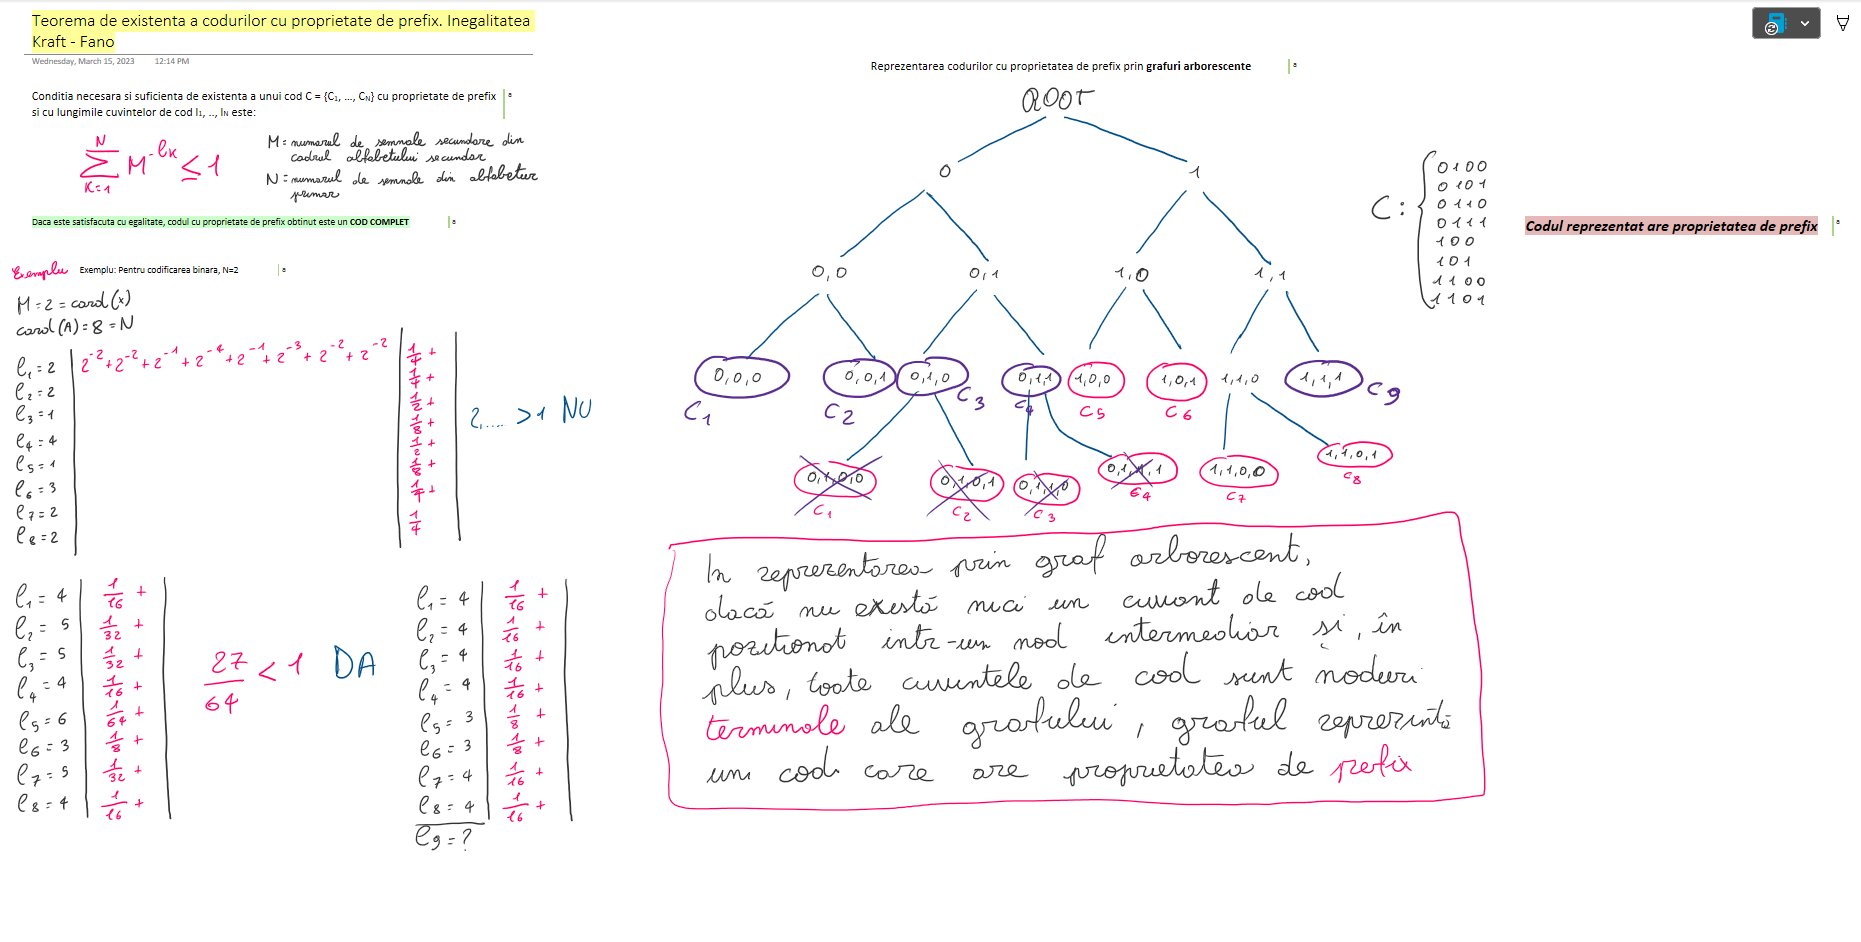 Teorema de existenta a codurilor cu proprietate de prefix. Inegalitatea
Kraft - Fano
Wednesday, March 15, 2023 12:14 PM
Conditia necesara si suficienta de existenta a unui cod C = {C₁, ..., Cₙ} cu proprietate de prefix
si cu lungimile cuvintelor de cod l₁, .., lₙ este:
N
∑ M^-lk ≤ 1
K=1
M = numarul de semnale secundare din
cadrul alfabetului secundar
N = numarul de semnale din alfabetul
primar
Daca este satisfacuta cu egalitate, codul cu proprietate de prefix obtinut este un COD COMPLET
Exemplu
Exemplu: Pentru codificarea binara, N=2
M = 2 = card(x)
card(A) = 8 = N
2^-2 + 2^-2 + 2^-1 + 2^-4 + 2^-1 + 2^-3 + 2^-2 + 2^-2
l₁ = 2
l₂ = 2
l₃ = 1
l₄ = 4
l₅ = 1
l₆ = 3
l₇ = 2
l₈ = 2
1/4 +
1/4 +
1/2 +
1/8 +
1/2 +
1/8 +
1/4 +
1/4
2,.... > 1 NU
l₁ = 4 1/16 +
l₂ = 5 1/32 +
l₃ = 5 1/32 +
l₄ = 4 1/16 +
l₅ = 6 1/64 +
l₆ = 3 1/8 +
l₇ = 5 1/32 +
l₈ = 4 1/16 +
27/64 < 1 DA
l₁ = 4 1/16 +
l₂ = 4 1/16 +
l₃ = 4 1/16 +
l₄ = 4 1/16 +
l₅ = 3 1/8 +
l₆ = 3 1/8 +
l₇ = 4 1/16 +
l₈ = 4 1/16 +
l₉ = ?
Reprezentarea codurilor cu proprietatea de prefix prin grafuri arborescente
ROOT
0 1
0,0 0,1 1,0 1,1
0,0,0 0,0,1 0,1,0 0,1,1 1,0,0 1,0,1 1,1,0 1,1,1
C1 C2 C3 C4 C5 C6 C9
0,1,0,0 0,1,0,1 0,1,1,0 0,1,1,1 1,1,0,0 1,1,0,1
C1 C2 C3 C4 C7 C8
C:
0100
0101
0110
0111
100
101
1100
1101
Codul reprezentat are proprietatea de prefix
In reprezentarea prin graf arborescent,
dacă nu există nici un cuvant de cod
pozitionat intr-un nod intermediar și, în
plus, toate cuvintele de cod sunt noduri
terminale ale grafului, graful reprezintă
un cod care are proprietatea de prefix